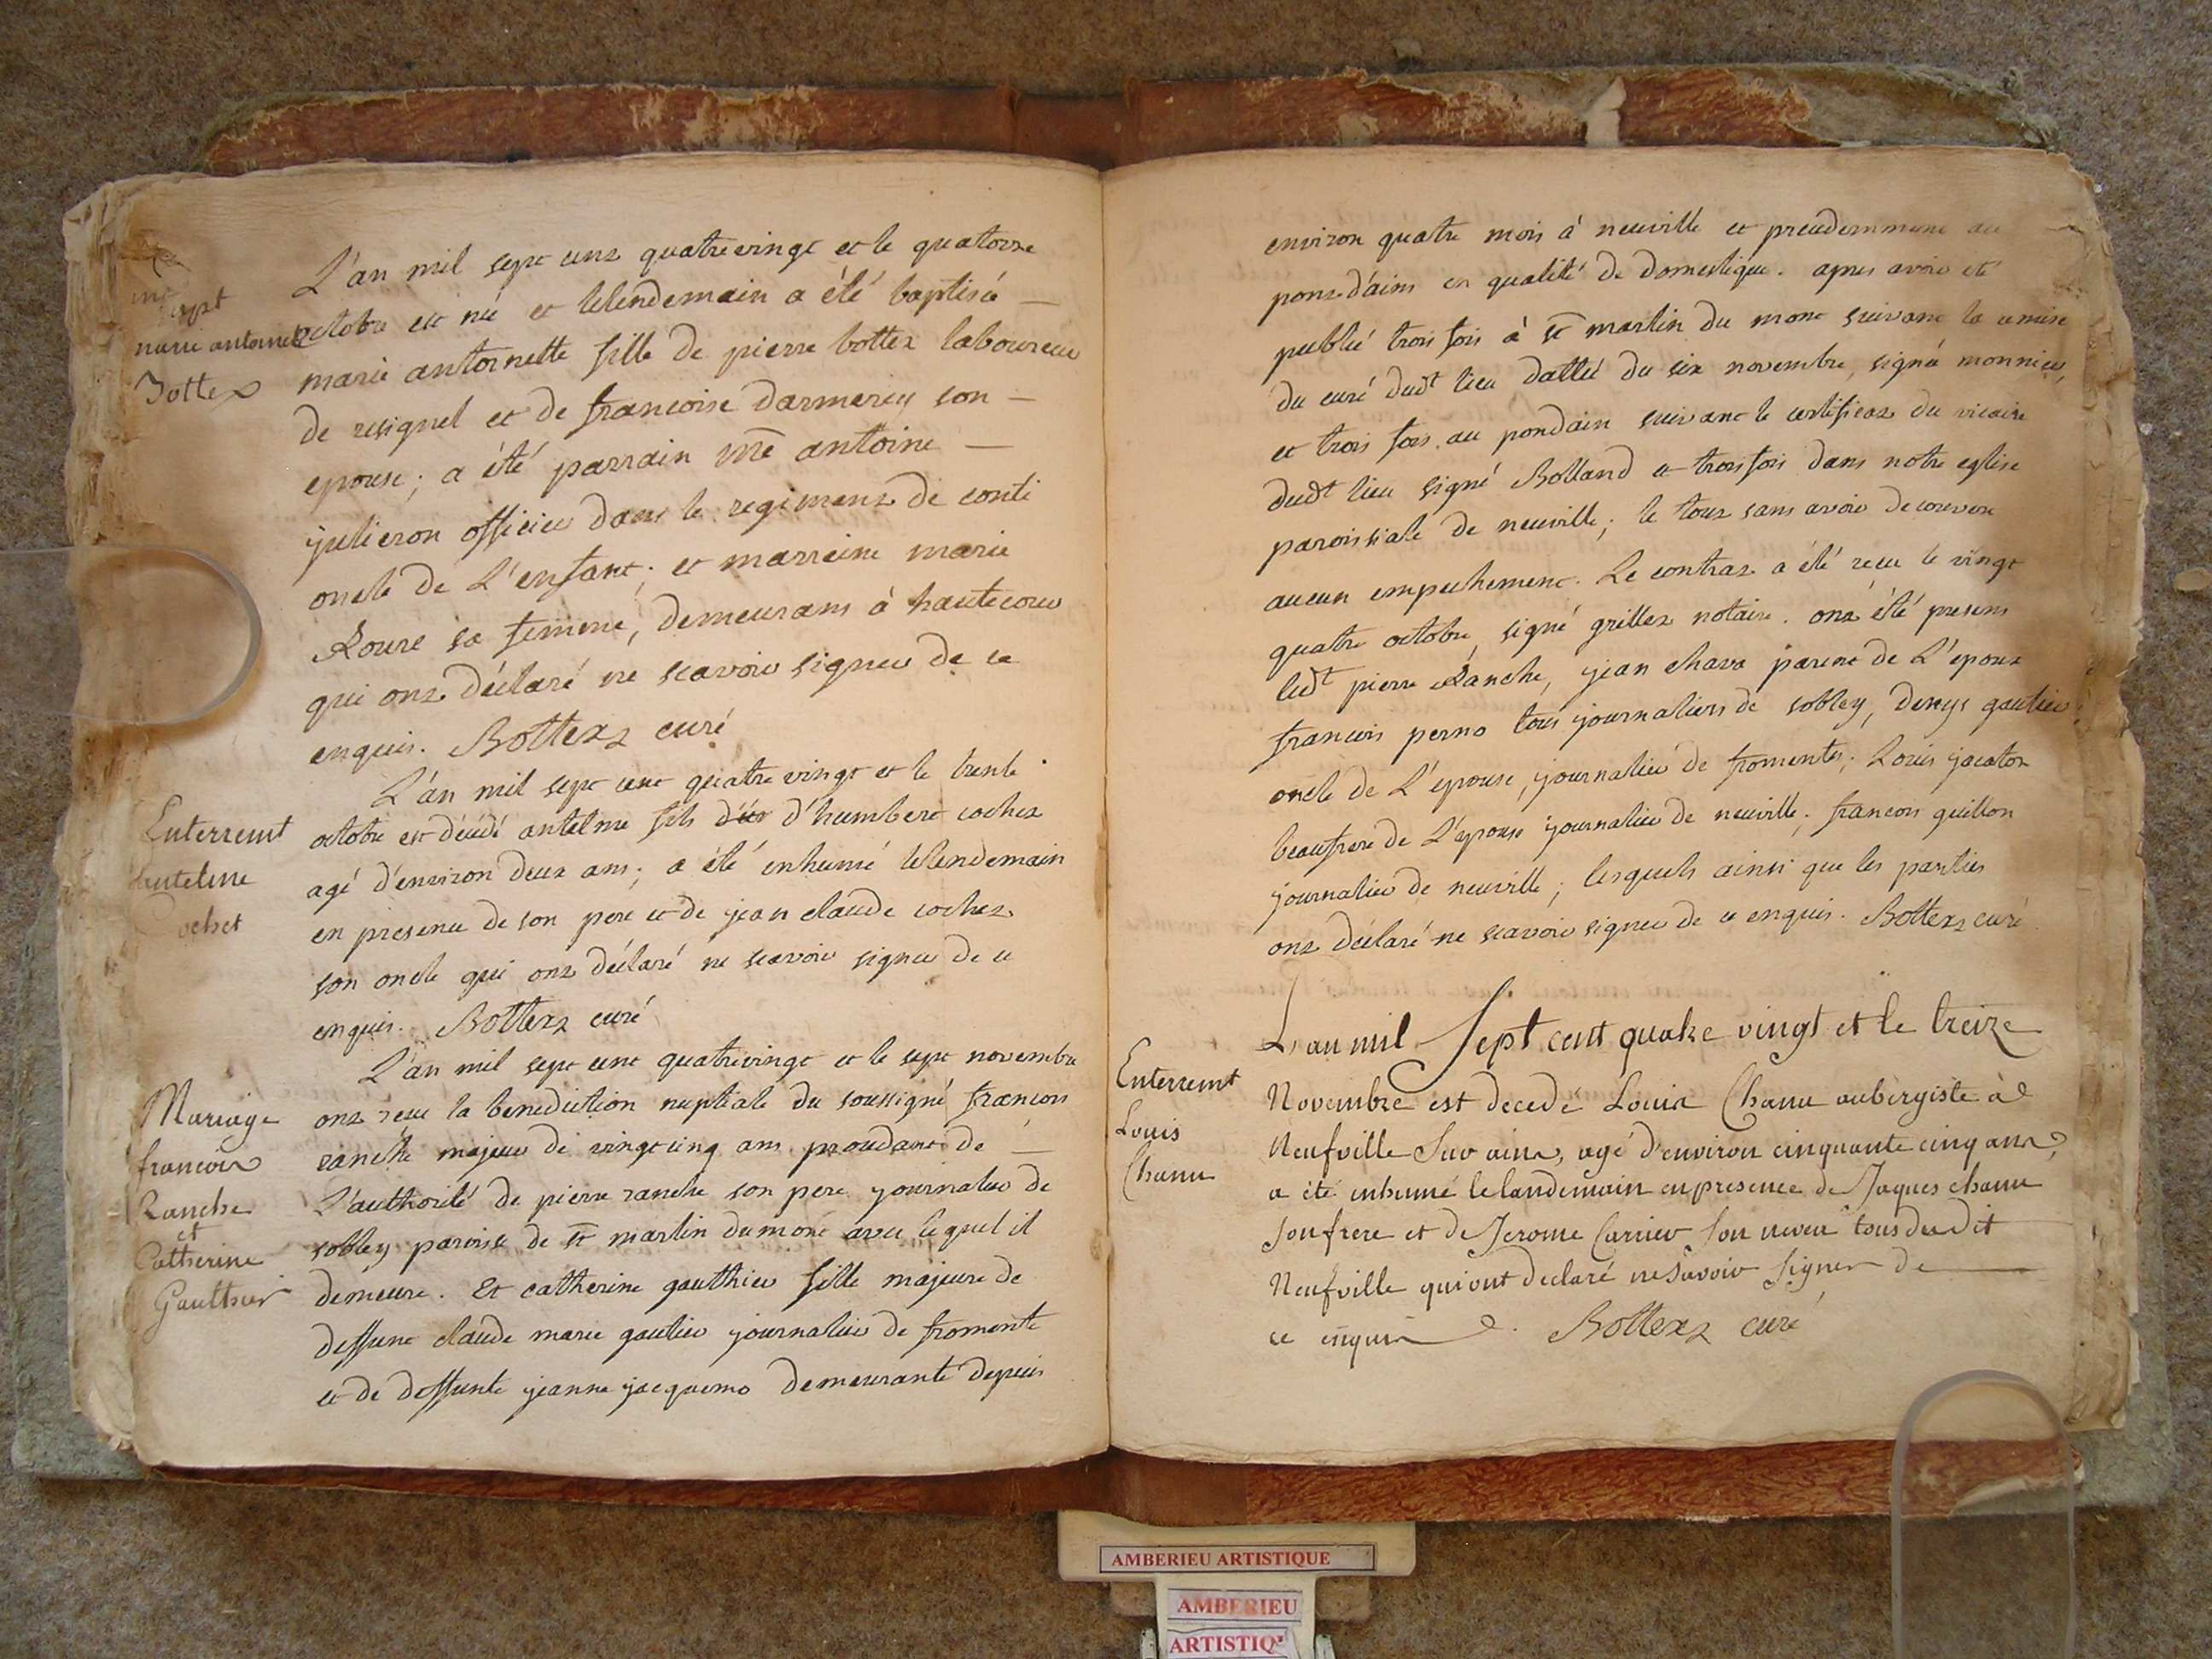 L'an mil sept cens quatrevingt et le quatorze
bapt
marie antoinette
Bottex
octobre est née et lelendemain a été baptisée
marie antoinette fille de pierre bottex laboureur
de resignel et de francoise darmerey son
epouse; a été parrain mre antoine
julieron officier dans le regiment de conti
oncle de L'enfant; et marreine marie
Roure sa femme, demeurans à hautecour
qui ont déclaré ne scavoir signer de ce
enquis. Bottex curé
L'an mil sept cent quatre vingt et le trente
Enterremt
antelme
Cochet
octobre est décédé antelme fils d'humbert cochet
agé d'environ deux ans; a été enhumé lelendemain
en presence de son pere et de jean claude cochet
son oncle qui ont déclaré ne scavoir signer de ce
enquis. Bottex curé
L'an mil sept cent quatrevingt et le sept novembre
Mariage
francois
Ranche
et
Catherine
Gaulthier
ont reçu la benediction nuptiale du soussigné francois
ranche majeur de vingt cinq ans procedant de
L'authorité de pierre ranche son pere journalier de
sobley paroisse de st martin dumont avec lequel il
demeure. Et catherine gauthier fille majeure de
deffunt claude marie gautier journalier de fromente
et de deffunte jeanne jacquemo demeurante depuis
environ quatre mois à neuville et precedemment au
pont-d'ains en qualité de domestique. apres avoir été
publié trois fois à st martin du mont suivant la remise
du curé dudt lieu dattée du six novembre, signé monnier,
et trois fois au pondain suivant le certificat du vicaire
dudt lieu signé Rolland et trois fois dans notre eglise
paroissiale de neuville; le tout sans avoir decouvert
aucun empechement. Le contrat a été recu le vingt
quatre octobre, signé grillet notaire. ont été presens
ledt pierre Ranche, jean chava parent de L'epoux
francois perno tous journaliers de sobley, denys gautier
oncle de L'epouse, journalier de fromentes; Louis jacaton
beaufrere de L'epouse journalier de neuville; francois guillon
journalier de neuville; lesquels ainsi que les parties
ont déclaré ne scavoir signer de ce enquis. Bottex curé
L'an mil Sept cent quatre vingt et le treize
Enterremt
Louis
Chanu
Novembre est decedé Louis Chanu aubergiste à
Neufville Sur ains, agé d'environ cinquante cinq ans,
a été enhumé le landemain en presence de Jaques chanu
Son frere et de Jerome Carrier Son neveu tous du dit
Neufville qui ont declaré ne Savoir Signer de
ce enquis. Bottex curé
AMBERIEU ARTISTIQUE
AMBERIEU
ARTISTIQ